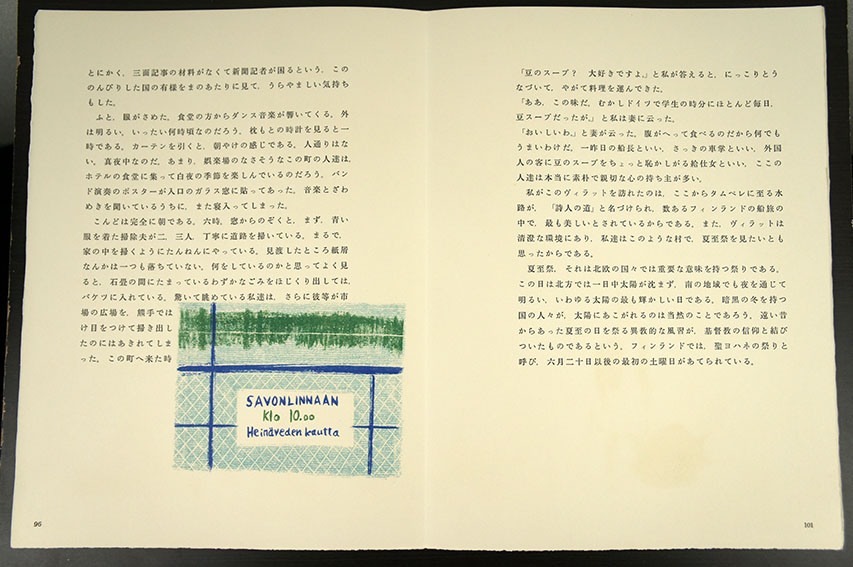 とにかく，三面記事の材料がなくて新聞記者が困るという，この
のんびりした国の有様をまのあたりに見て，うらやましい気持ち
もした。
ふと，眼がさめた。食堂の方からダンス音楽が響いてくる。外
は明るい。いったい何時頃なのだろう。枕もとの時計を見ると一
時である。カーテンを引くと，朝やけの感じである。人通りはな
い。真夜中なのだ。あまり，娯楽場のなさそうなこの町の人達は，
ホテルの食堂に集って白夜の季節を楽しんでいるのだろう。バン
ド演奏のポスターが入口のガラス窓に貼ってあった。音楽とざわ
めきを聞いているうちに，また寝入ってしまった。
こんどは完全に朝である。六時。窓からのぞくと，まず，青い
服を着た掃除夫が二，三人，丁寧に道路を掃いている。まるで，
家の中を掃くようにたんねんにやっている。見渡したところ紙屑
なんかは一つも落ちていない。何をしているのかと思ってよく見
ると，石畳の間にたまっているわずかなごみをほじくり出しては，
バケツに入れている。驚いて眺めている私達は，さらに彼等が市
場の広場を，熊手では
け目をつけて掃き出し
たのにはあきれてしま
った。この町へ来た時
SAVONLINNAAN
Klo 10.00
Heinäveden kautta
96
「豆のスープ？　大好きですよ。」と私が答えると，にっこりとう
なづいて，やがて料理を運んできた。
「ああ，この味だ。むかしドイツで学生の時分にほとんど毎日，
豆スープだったが。」と私は妻に云った。
「おいしいわ。」と妻が云った。腹がへって食べるのだから何でも
うまいわけだ。一昨日の船長といい，さっきの車掌といい，外国
人の客に豆のスープをちょっと恥かしがる給仕女といい，ここの
人達は本当に素朴で親切な心の持ち主が多い。
私がこのヴィラットを訪れたのは，ここからタムペレに至る水
路が，「詩人の道」と名づけられ，数あるフィンランドの船旅の
中で，最も美しいとされているからである。また，ヴィラットは
清澄な環境にあり，私達はこのような村で，夏至祭を見たいとも
思ったからである。
夏至祭，それは北欧の国々では重要な意味を持つ祭りである。
この日は北方では一日中太陽が沈まず，南の地域でも夜を通じて
明るい，いわゆる太陽の最も輝かしい日である。暗黒の冬を持つ
国の人々が，太陽にあこがれるのは当然のことであろう。遠い昔
からあった夏至の日を祭る異教的な風習が，基督教の信仰と結び
ついたものであるという。フィンランドでは，聖ヨハネの祭りと
呼び，六月二十日以後の最初の土曜日があてられている。
101